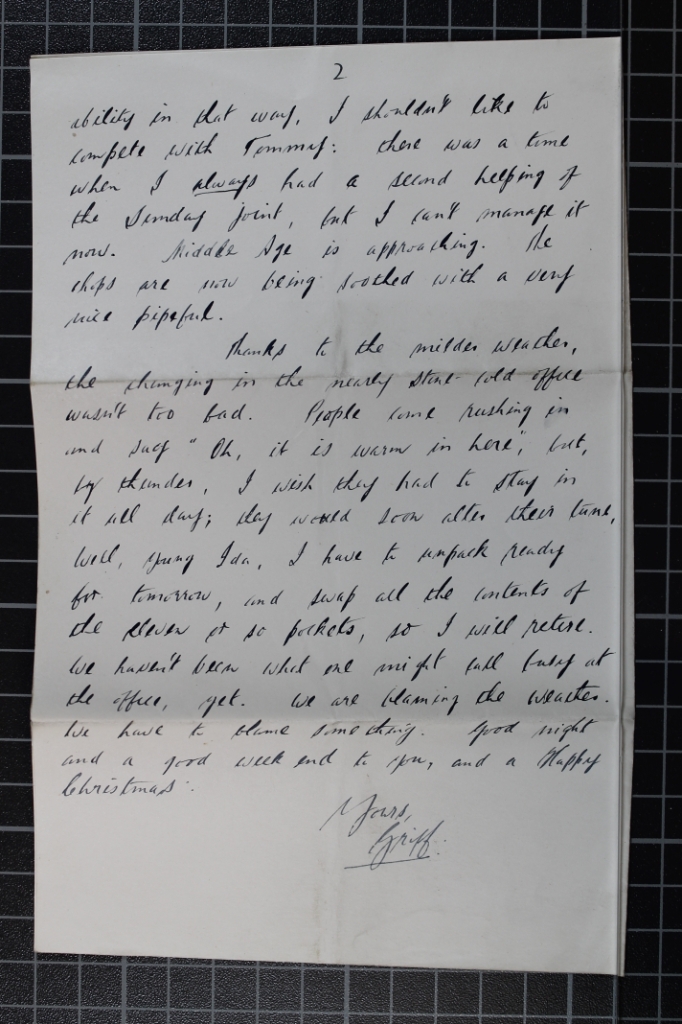 2
ability in that way, I shouldn't like to
compete with Tommy: there was a time
when I always had a second helping of
the Sunday joint, but I can't manage it
now. Middle Age is approaching. The
chops are now being soothed with a very
nice pipeful.
Thanks to the milder weather,
the changing in the nearly stone-cold office
wasn't too bad. People come rushing in
and say "Oh, it is warm in here", but,
by thunder, I wish they had to stay in
it all day; they would soon alter their tune.
Well, young Ida, I have to unpack ready
for tomorrow, and swap all the contents of
the eleven or so pockets, so I will retire.
We haven't been what one might call busy at
the office, yet. We are blaming the weather.
We have to blame something. Good night
and a good week end to you, and a Happy
Christmas.
Yours,
Griff.